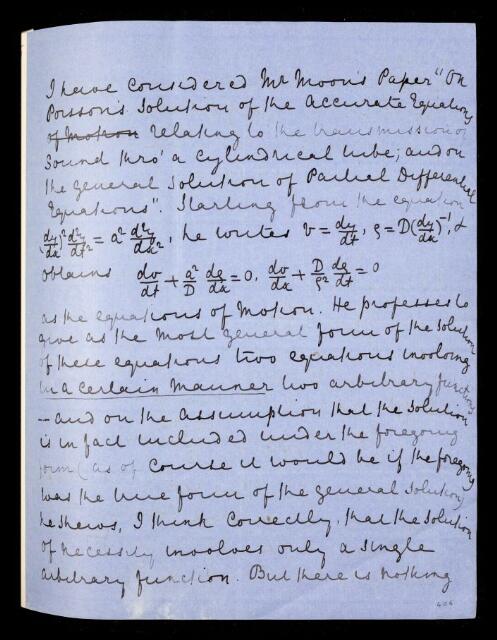 I have considered Mr Moon's Paper "On
Poisson's Solution of the accurate Equations
of Motion relating to the transmission of
Sound thro' a cylindrical tube; and on
the general Solution of Partial Differential
Equations". Starting from the equation
(dy/dx)² d²y/dt² = a² d²y/dx², he writes v = dy/dt, ρ = D(dy/dx)⁻¹, &
obtains dv/dt + a²/D dρ/dx = 0, dv/dx + D/ρ² dρ/dt = 0
as the equations of Motion. He professes to
give as the most general form of the solution
of these equations two equations involving
in a certain manner two arbitrary functions
—and on the assumption that the solution
is in fact included under the foregoing
form (as of course it would be if the foregoing
was the true form of the general solution)
he shews, I think correctly, that the solution
of necessity involves only a single
arbitrary function. But there is nothing
406